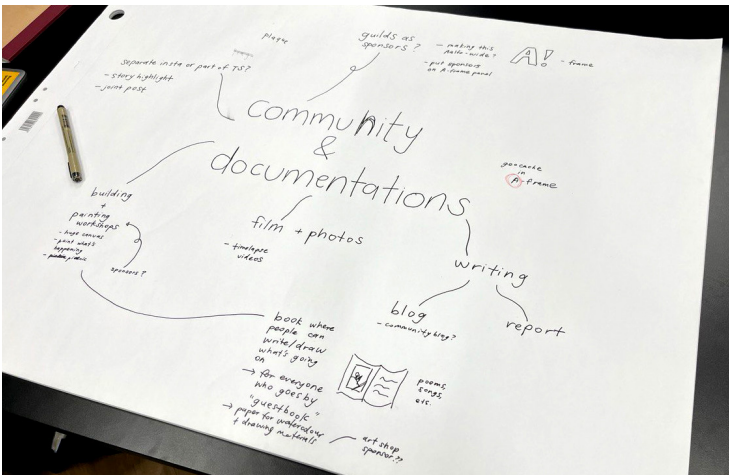 plaque
guilds as
sponsors?
- making this
Aalto-wide?
- put sponsors
on A-frame panel
A!
- frame
separate insta or part of TS?
- story highlight
- joint post
community
&
documentations
geocache
in
A-frame
building
+
painting
workshops
- huge canvas
- paint what's
happening
- picnic
sponsors?
film + photos
- timelapse
videos
writing
blog
- community blog?
report
book where
people can
write/draw
what's going
on
→ for everyone
who goes by
"guestbook"
→ paper for watercolour
+ drawing materials
poems,
songs,
etc.
art shop
sponsor??